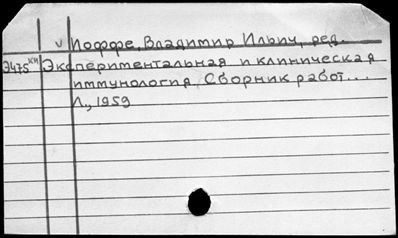 v Иоффе, Владимир Ильич, ред.
Э475кн Экспериментальная и клиническая
иммунология. Сборник работ...
Л., 1959